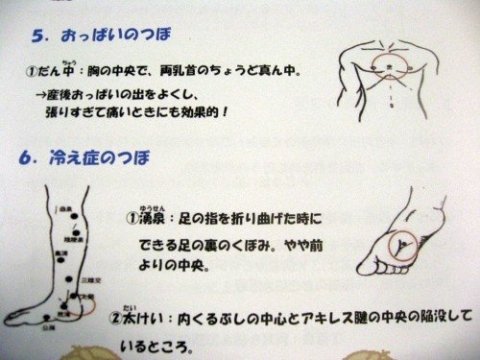 5. おっぱいのつぼ
①だん中：胸の中央で、両乳首のちょうど真ん中。
ちゅう
→産後おっぱいの出をよくし、
張りすぎて痛いときにも効果的！
6. 冷え症のつぼ
ゆうせん
①湧泉：足の指を折り曲げた時に
できる足の裏のくぼみ。やや前
よりの中央。
三陰交
たい
②太けい：内くるぶしの中心とアキレス腱の中央の陥没して
いるところ。